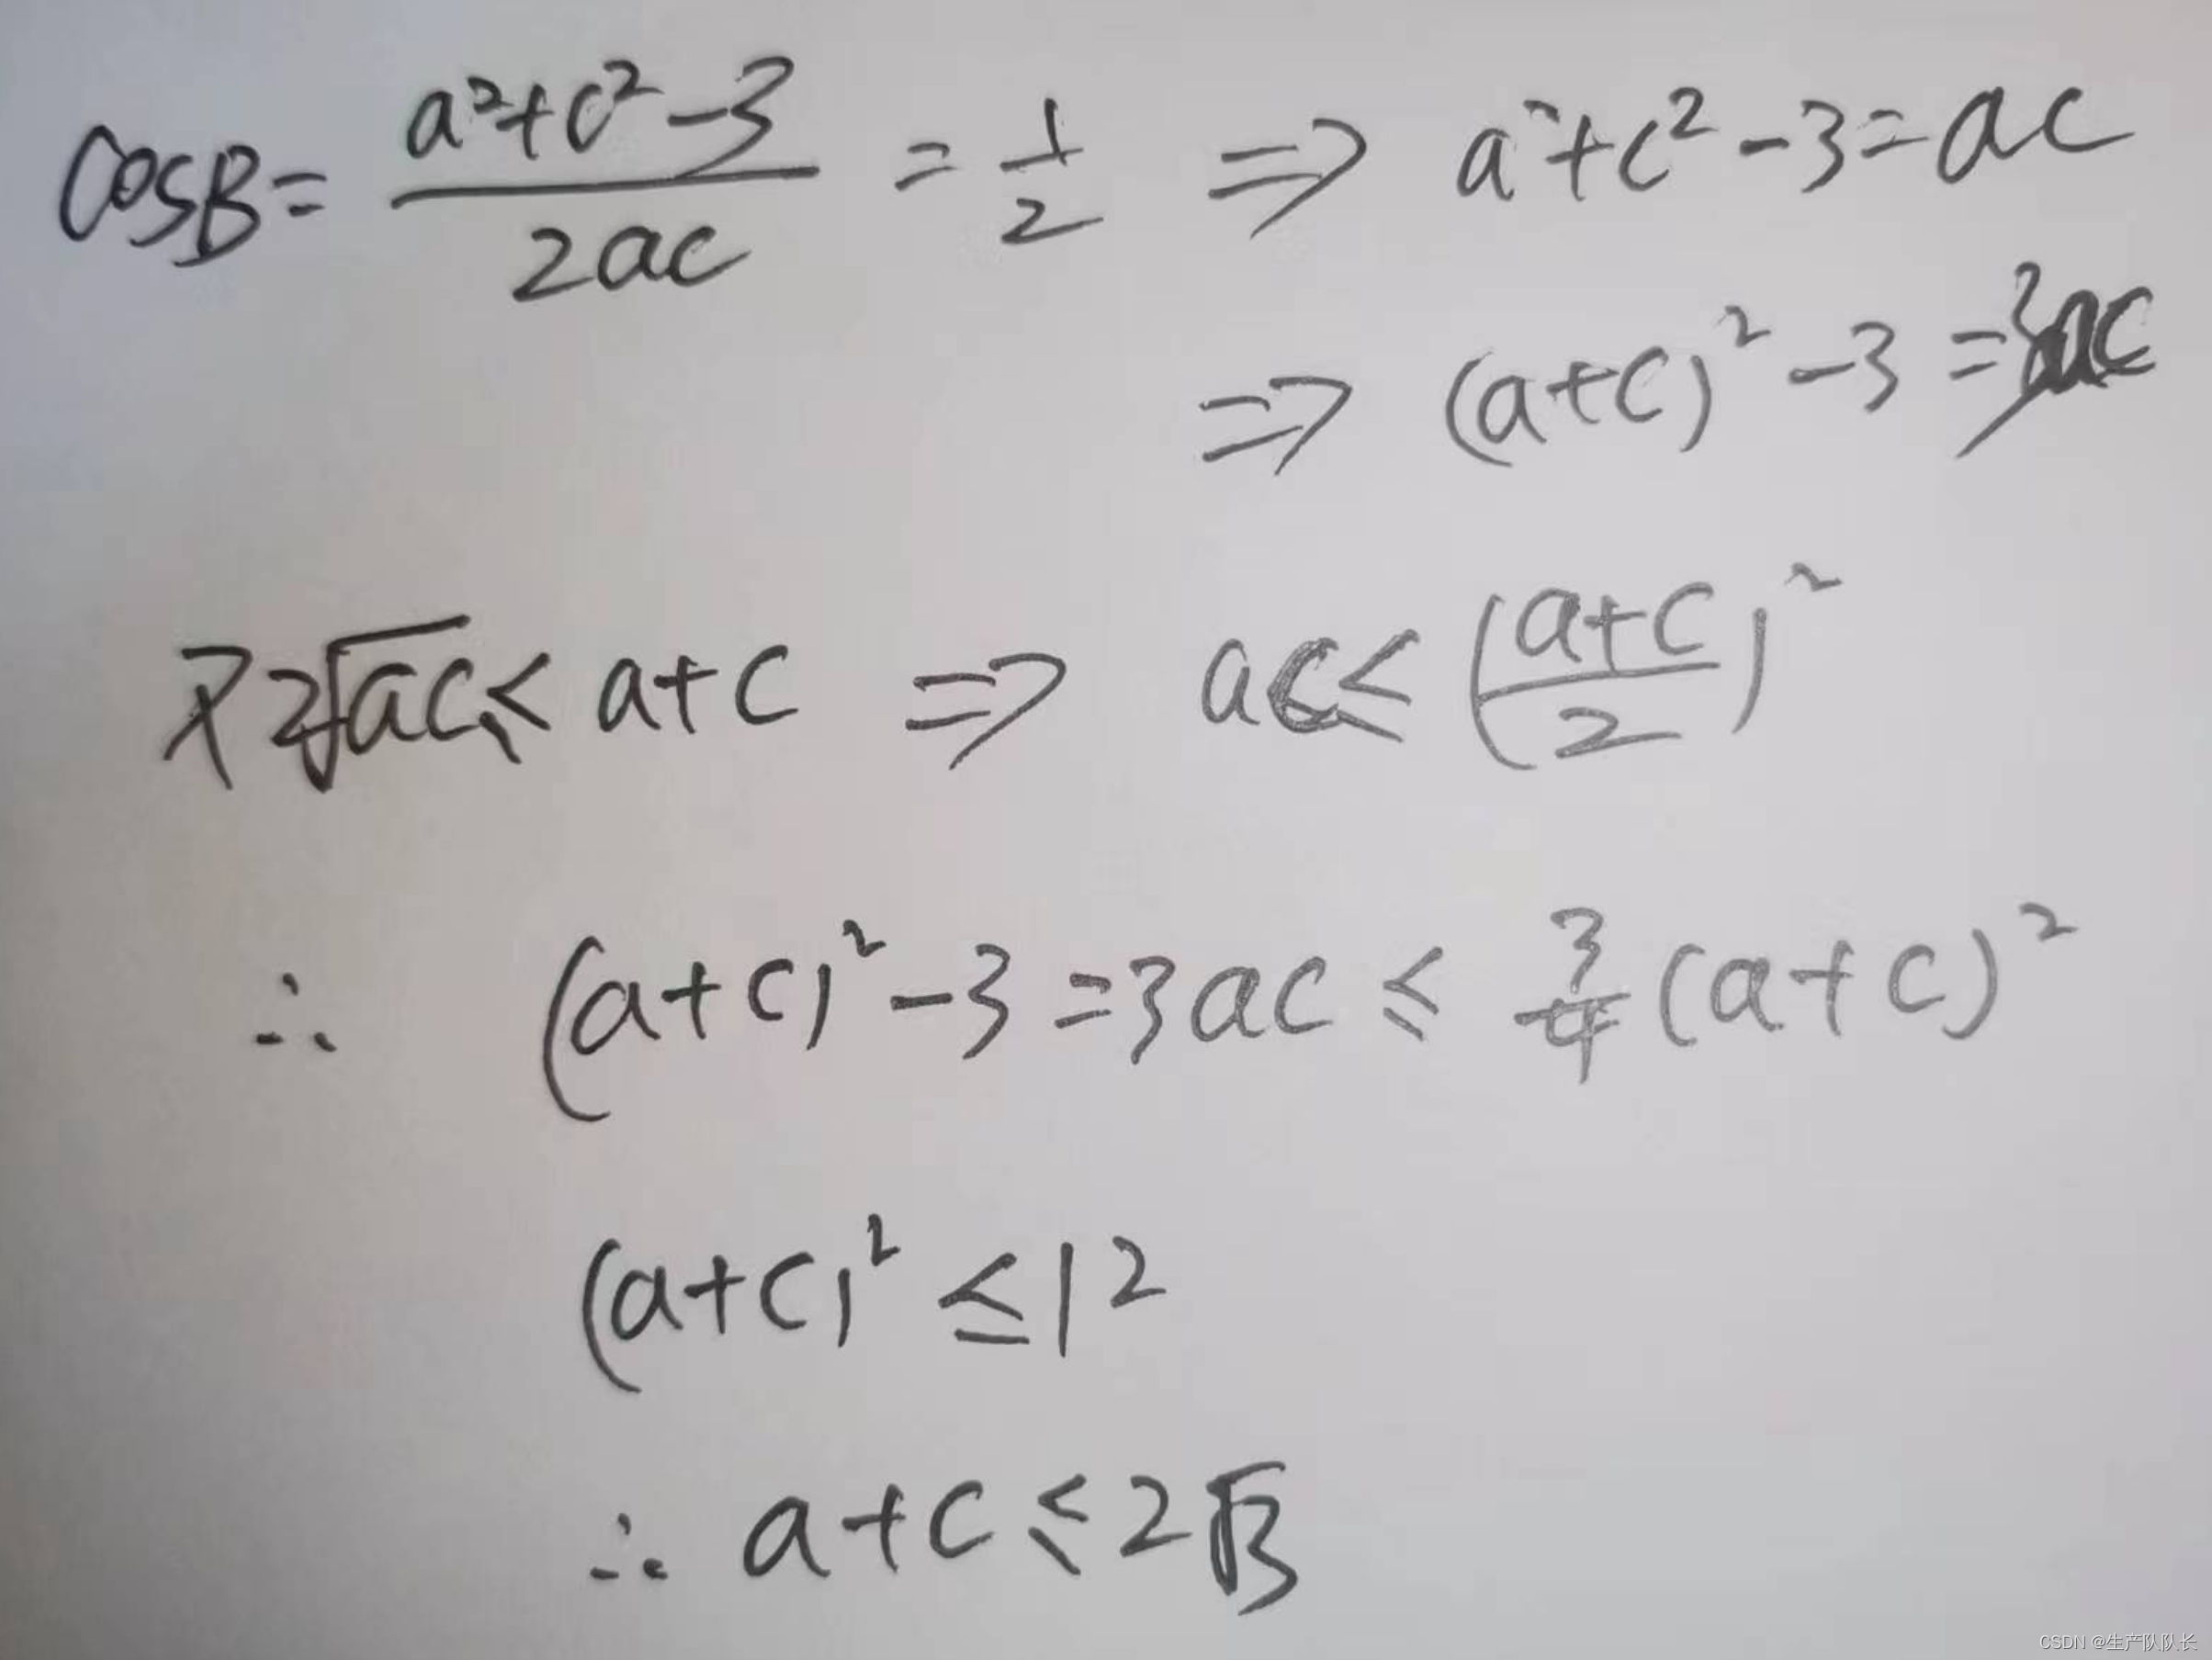 cosB = (a²+c²-3)/(2ac) = 1/2 ⇒ a²+c²-3=ac
⇒ (a+c)²-3=3ac
又 2√ac ≤ a+c ⇒ ac ≤ ((a+c)/2)²
∴ (a+c)²-3=3ac ≤ 3/4(a+c)²
(a+c)² ≤ 12
∴ a+c ≤ 2√3
CSDN @生产队队长